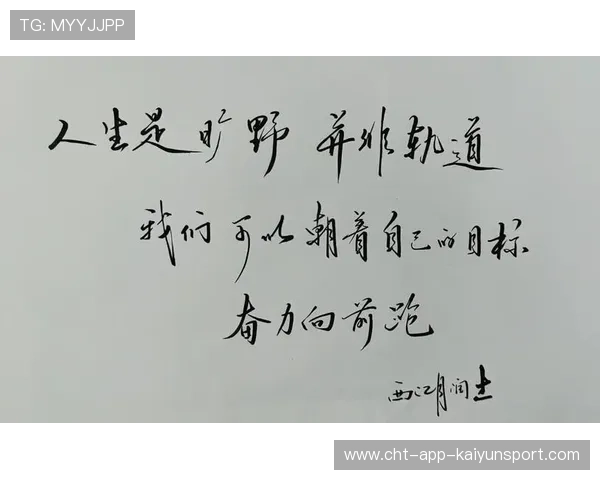 TG: MYYJJPP
人生是旷野 并非轨道
我们可以朝着自己的目标
奋力向前跑
西江月润土
www.cht-app-kaiyunsport.com